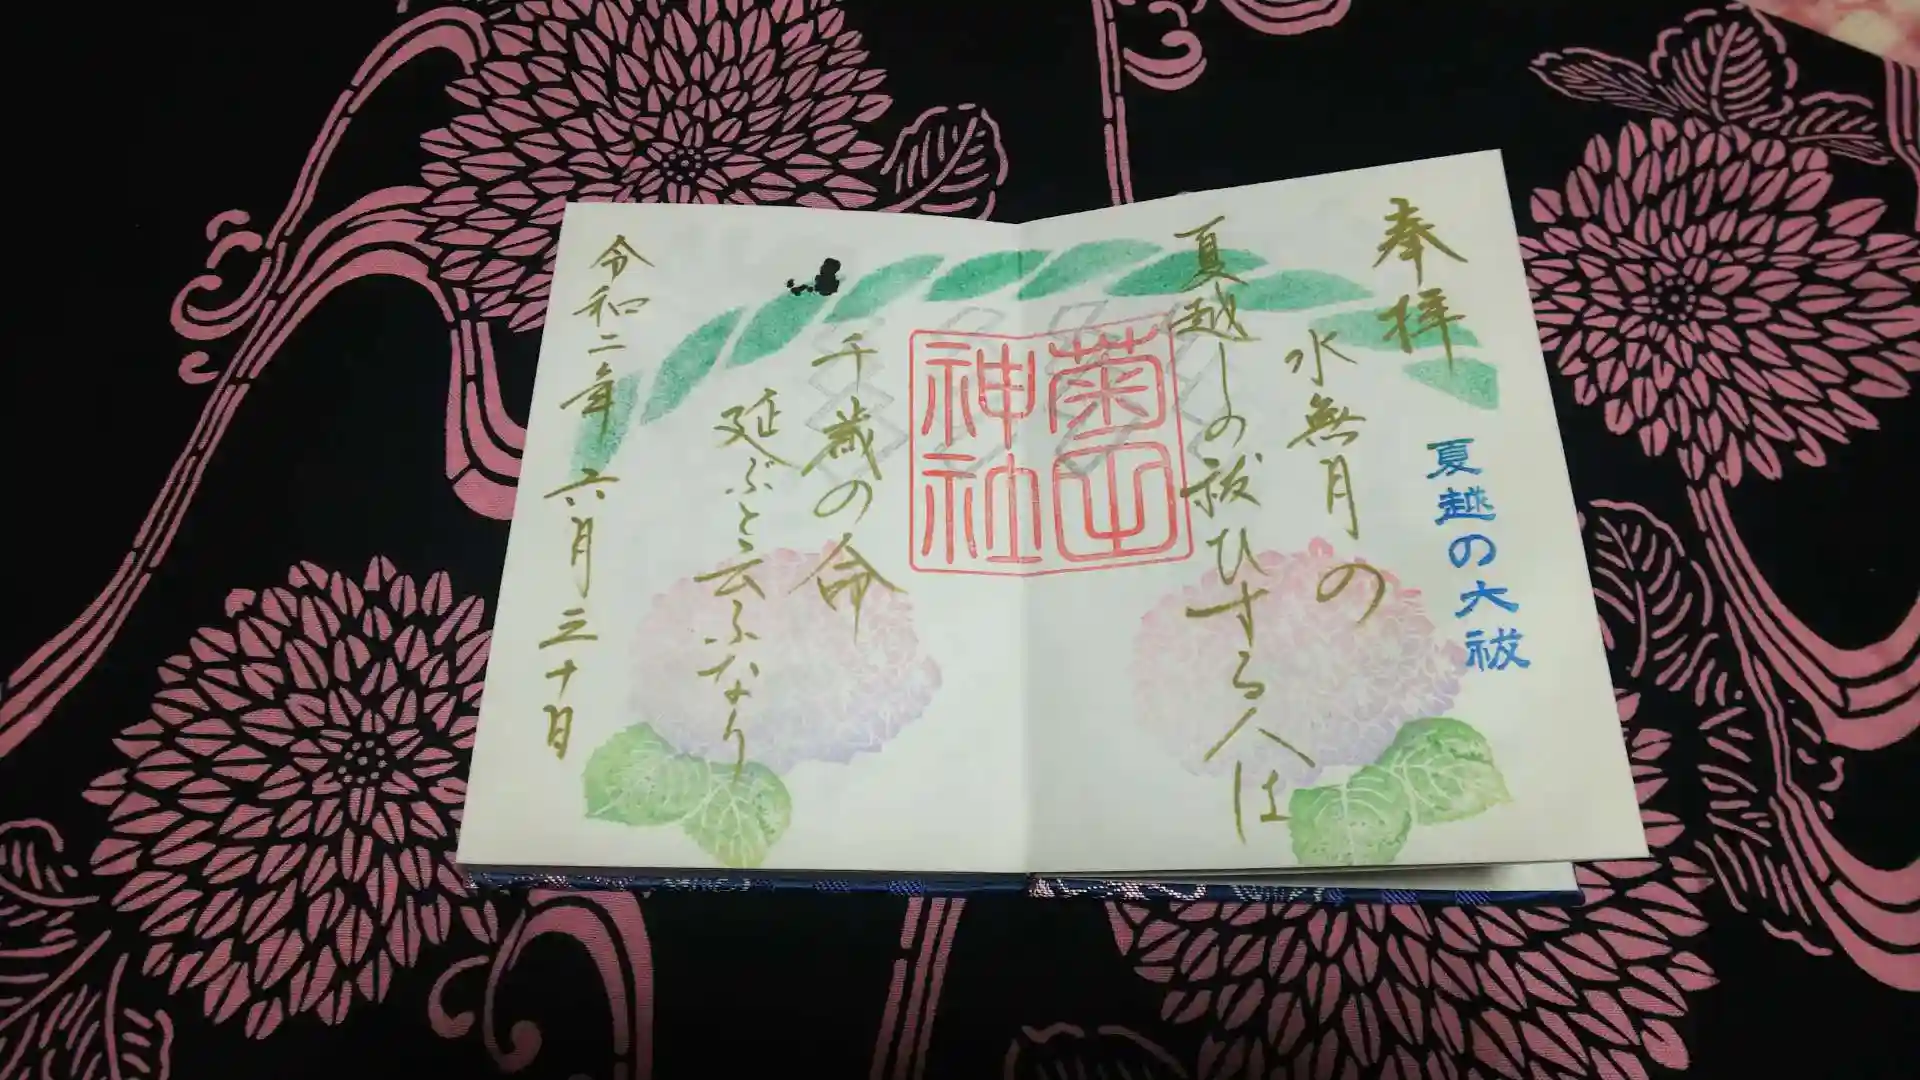 奉拝
夏越の大祓
水無月の
夏越しの祓ひする人は
菊田
神社
千歳の命
延ぶと云ふなり
令和二年 六月三十日